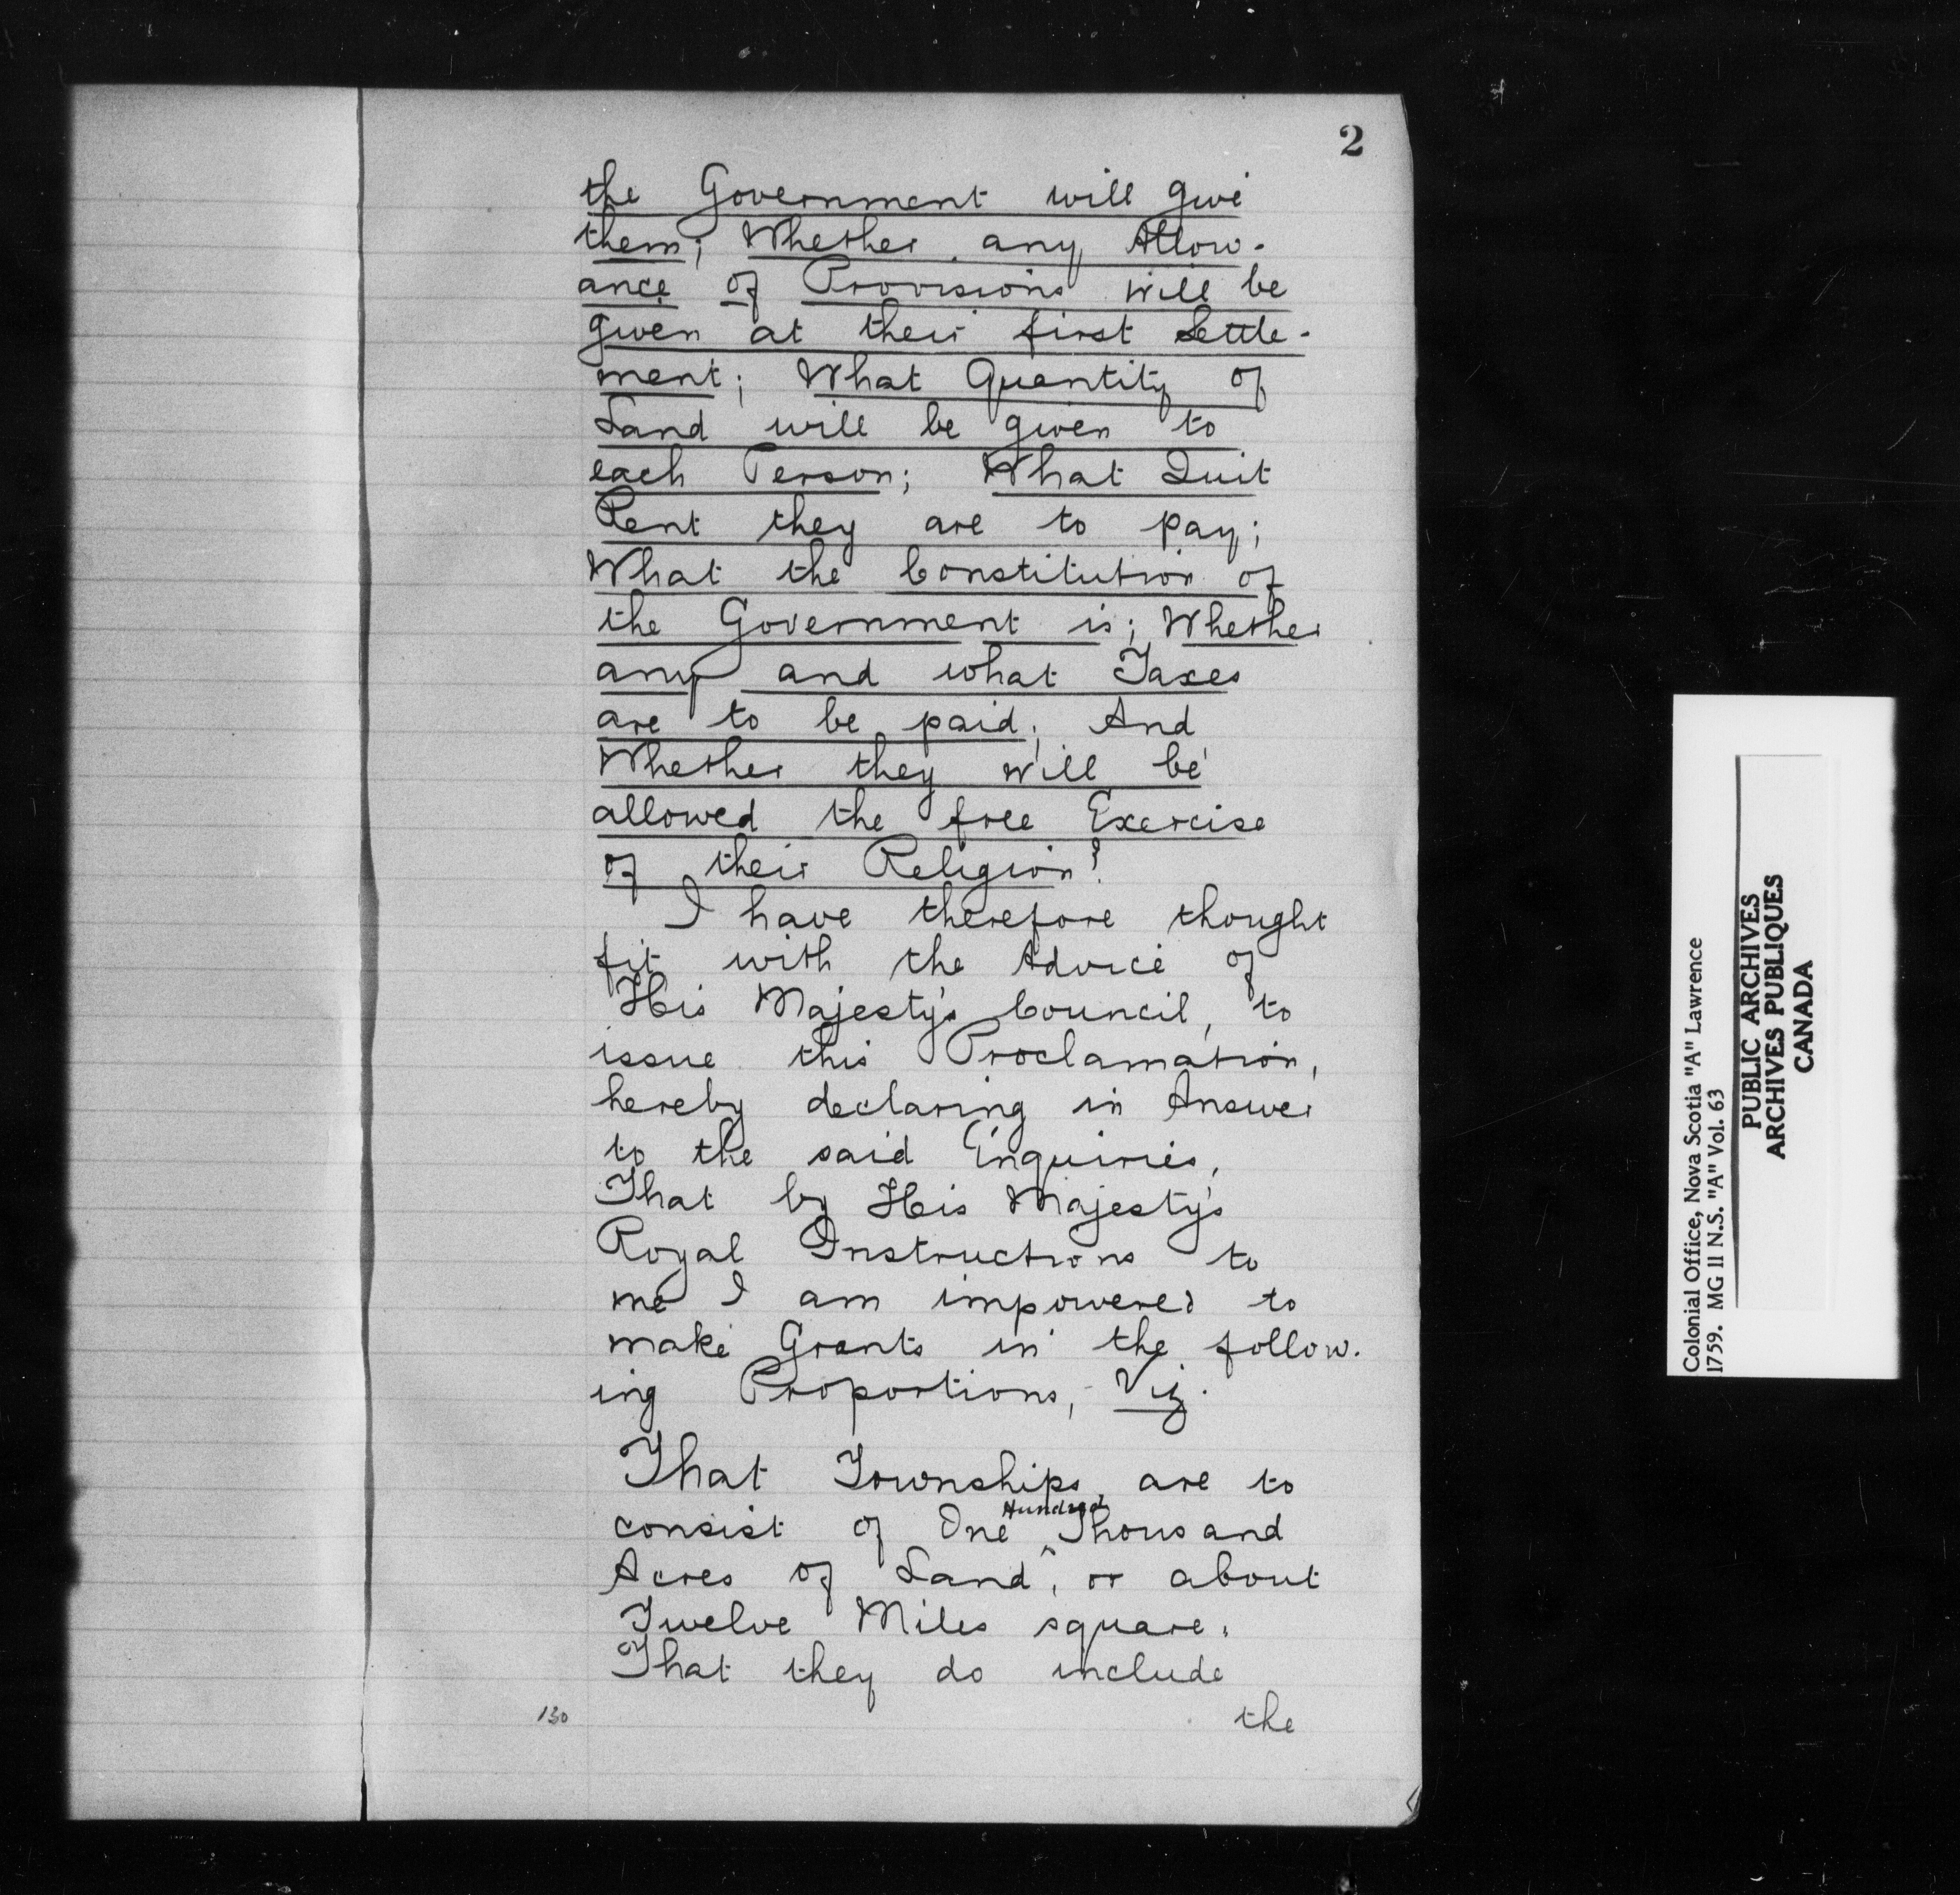 2
the Government will give
them; Whether any Allow-
ance of Provisions will be
given at their first Settle-
ment; What Quantity of
Land will be given to
each Person; What Quit
Rent they are to pay;
What the Constitution of
the Government is; Whether
any and what Taxes
are to be paid; And
Whether they will be
allowed the free Exercise
of their Religion?
I have therefore thought
fit with the Advice of
His Majesty's Council, to
issue this Proclamation,
hereby declaring in Answer
to the said Enquiries,
That by His Majesty's
Royal Instructions to
me I am impowered to
make Grants in the follow-
ing Proportions, Viz.
That Townships are to
consist of One Hundred Thousand
Acres of Land, or about
Twelve Miles square.
That they do include
130
the
Colonial Office, Nova Scotia "A" Lawrence
1759. MG 11 N.S. "A" Vol. 63
PUBLIC ARCHIVES
ARCHIVES PUBLIQUES
CANADA